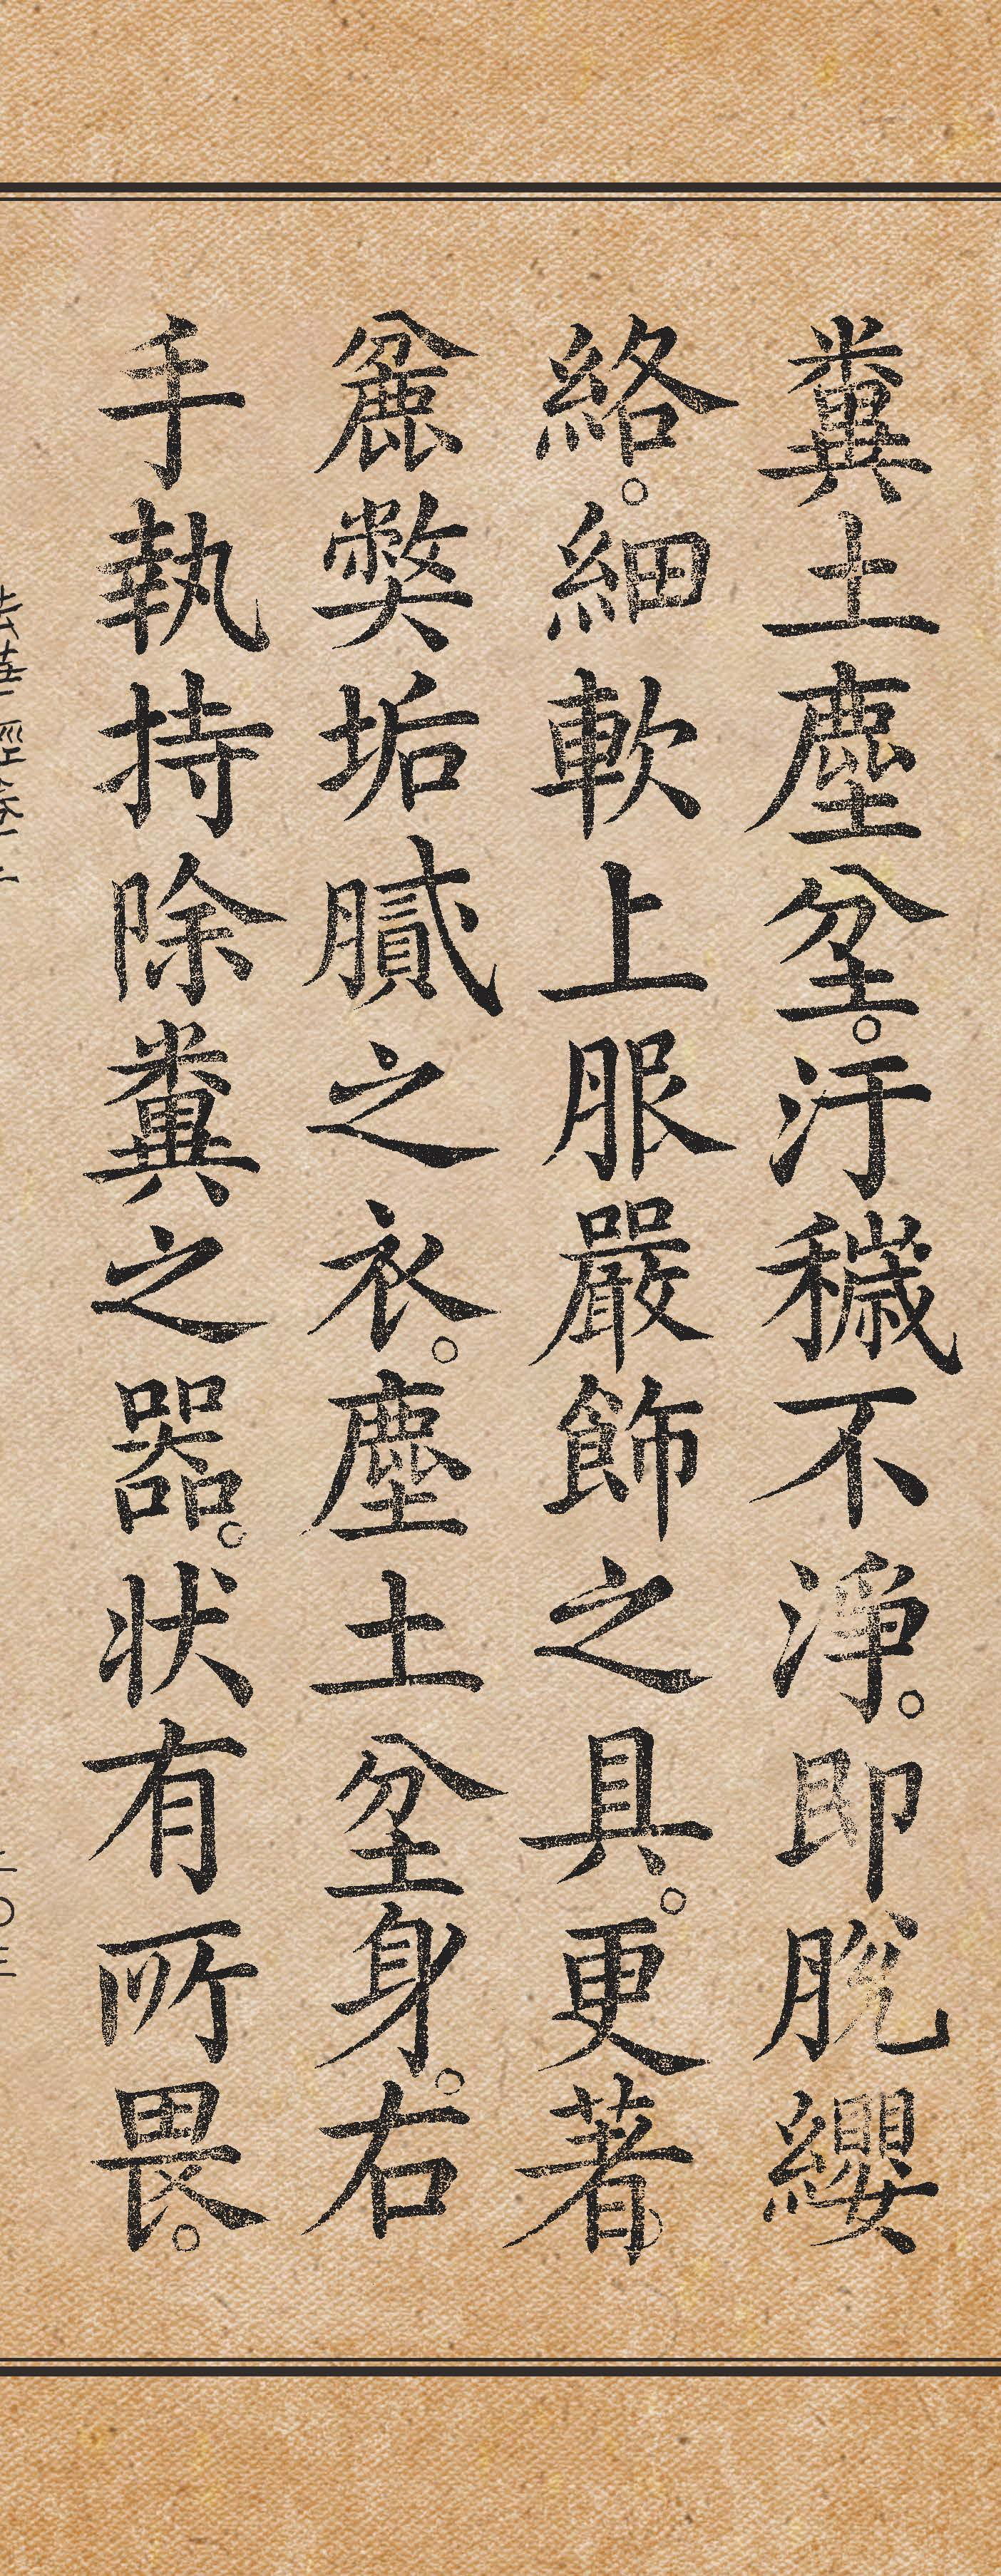 糞土塵坌。汙穢不淨。即脫纓
絡。細軟上服嚴飾之具。更著
麤弊垢膩之衣。塵土坌身。右
手執持除糞之器。狀有所畏。